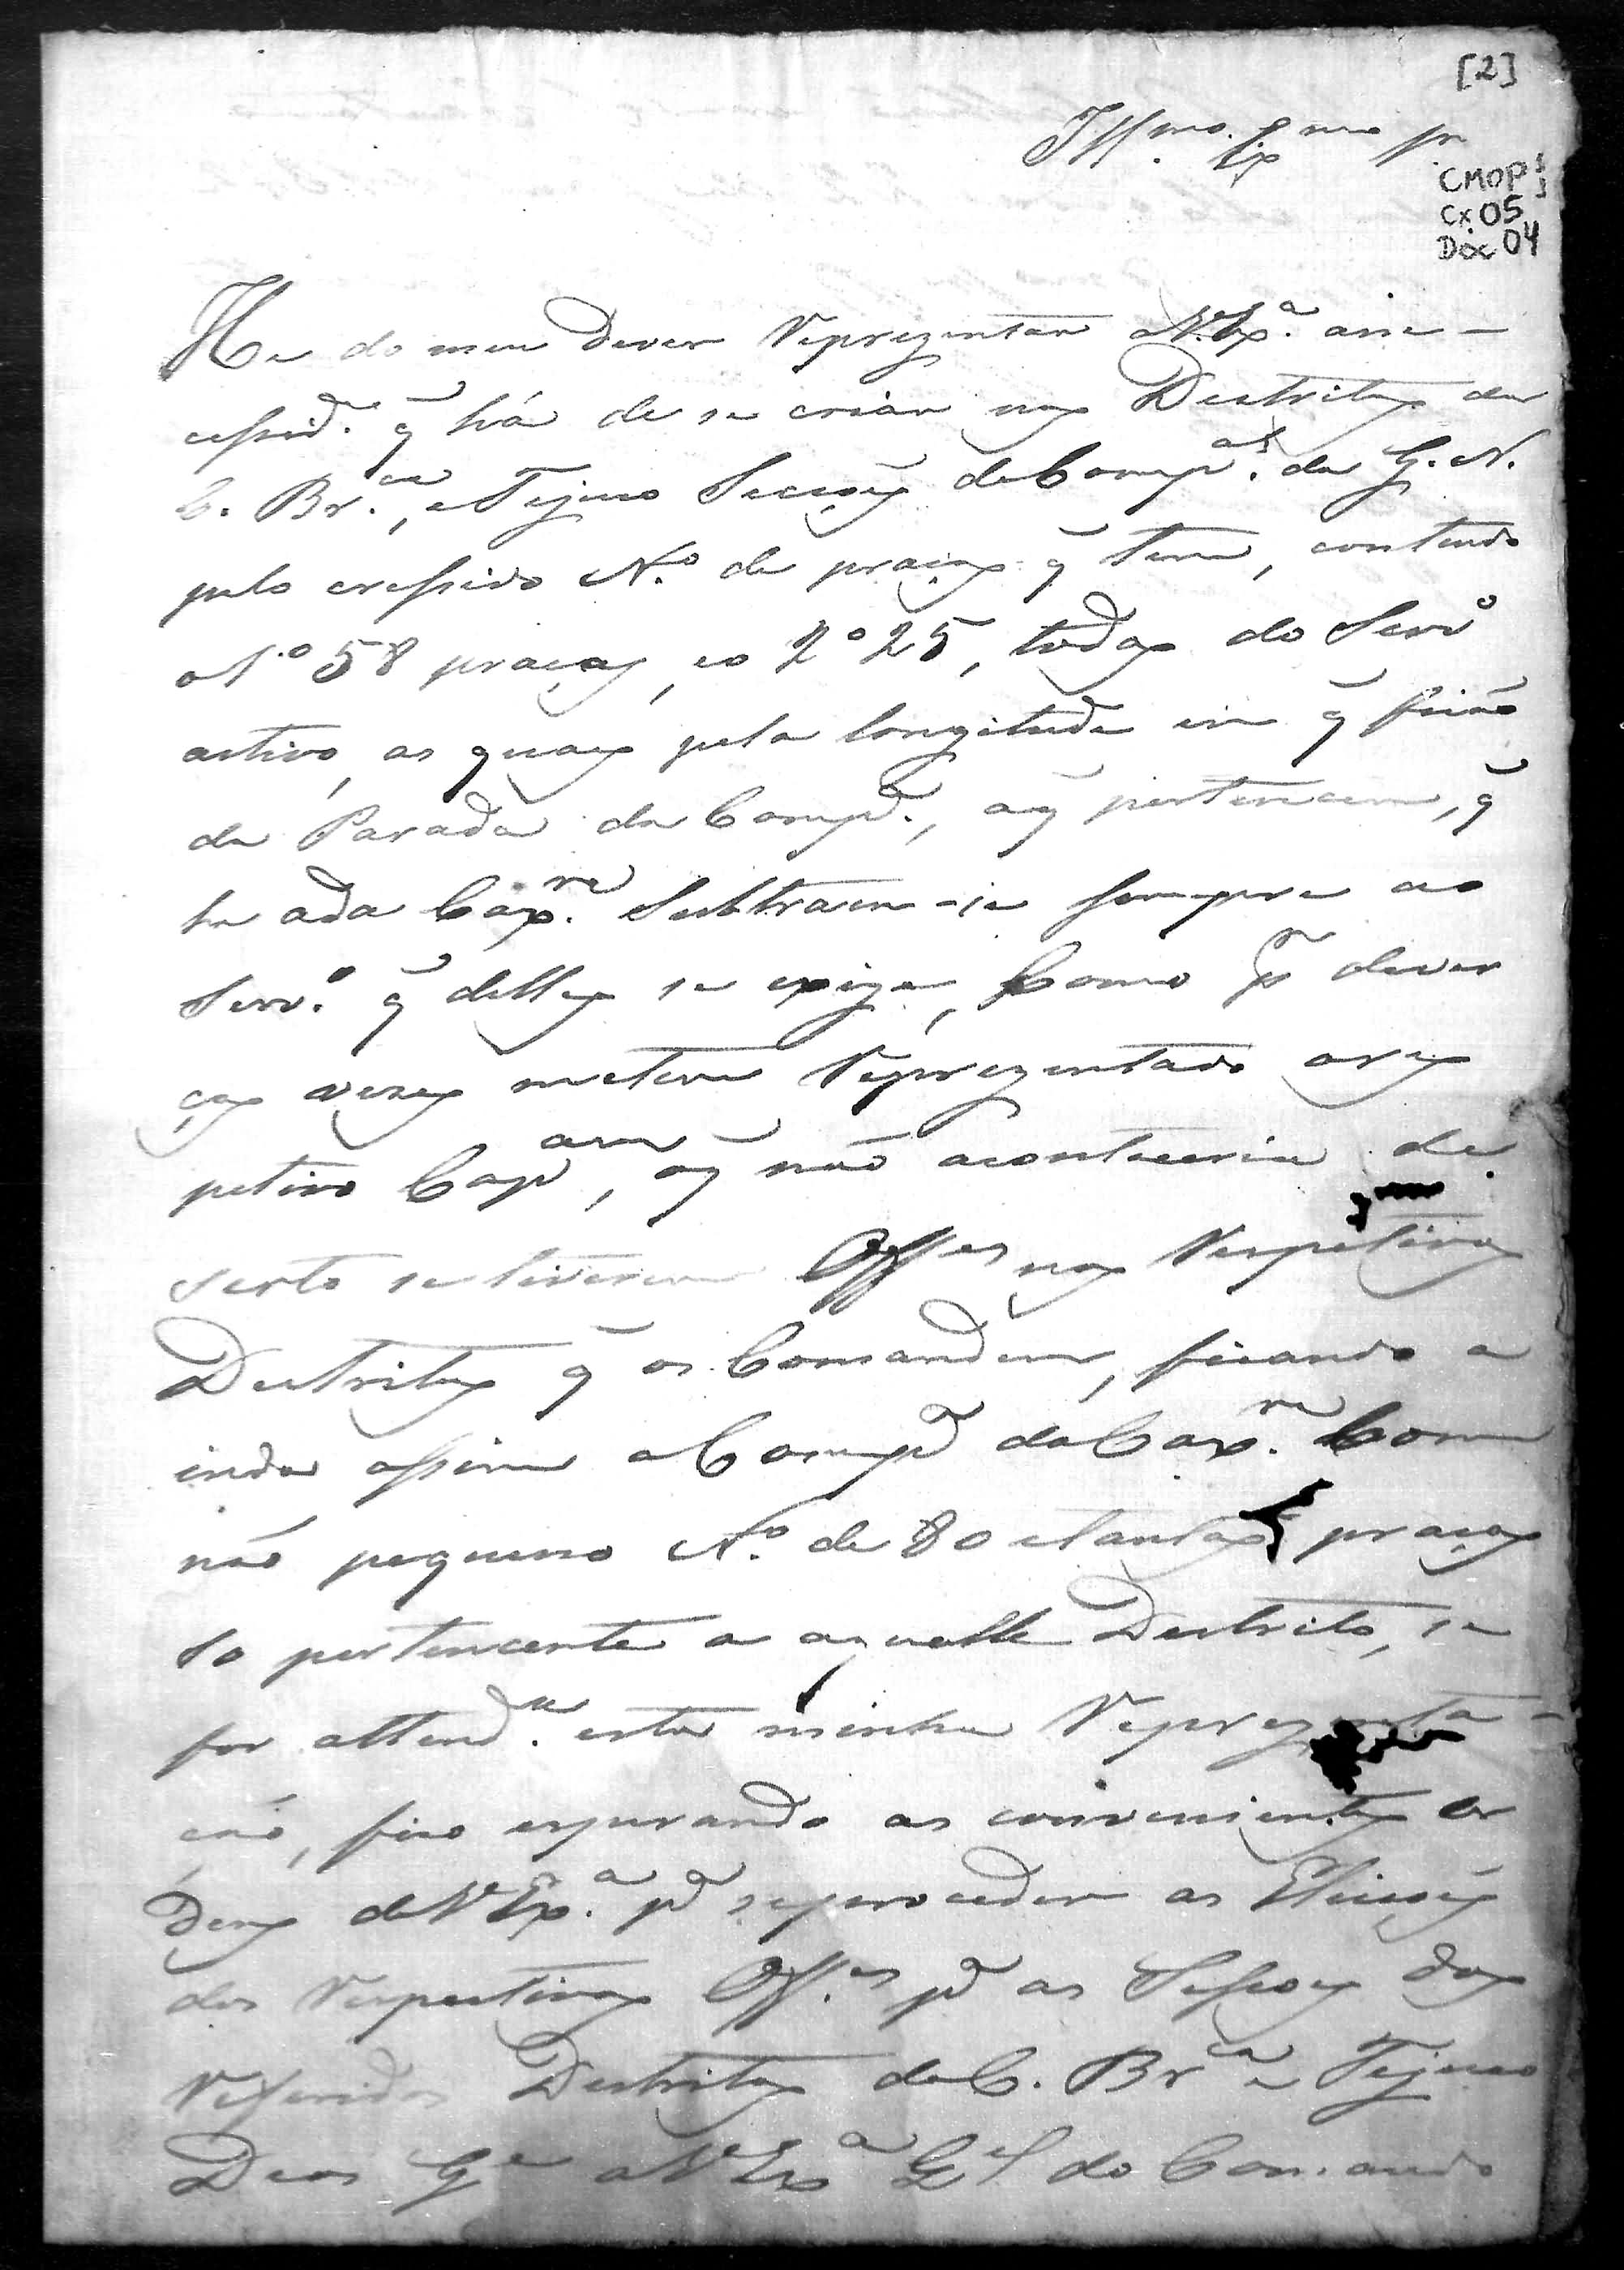 [2]
Illmo. Exmo Sr
CMOP
Cx 05
Doc 04
He do meu dever Reprezentar a V. Exª. a ne-
cessidᵉ. q̃ há de se criar nos Destritos da
C. Brᶜᵃ., e Tejuco Secçoẽs de Compᵃˢ. da G. N.
pelo cressido N.º de praças q̃ tem, contendo
o 1.º 58 praças, e o 2º 25, todas do Servº
activo, as quaes pela longitude em q̃ ficão
da Parada da Compª., a q̃ pertencem, q̃
he a da Caxrª. Subtraem-se sempre ao
Serv.º q̃ delles se exige, Como pʳ dever
ças vezes me tem Reprezentado o res
petivo Capᵃᵐ, o q̃ não aconteceria de
serto se tiverem Offᵉˢ nos Respetivos
Destritos q̃ os Comandem, ficando a
inda assim a Compª da Caxrª. Com
não pequeno N.º de 80 e tantas praças
so pertencente a aquelle Destrito, se
for attendᵃ. esta minha Reprezenta-
ção, fico esperando as convenientes or
dens de V. Exª. pª se proceder as Eleiçoẽs
dos Respectivos Off.ᵉˢ pª as Sessoẽs dos
Referidos Destritos da C. Brᶜᵃ e Tejuco
Deos Gᵉ a V Exª Qᵉˡ do Comando